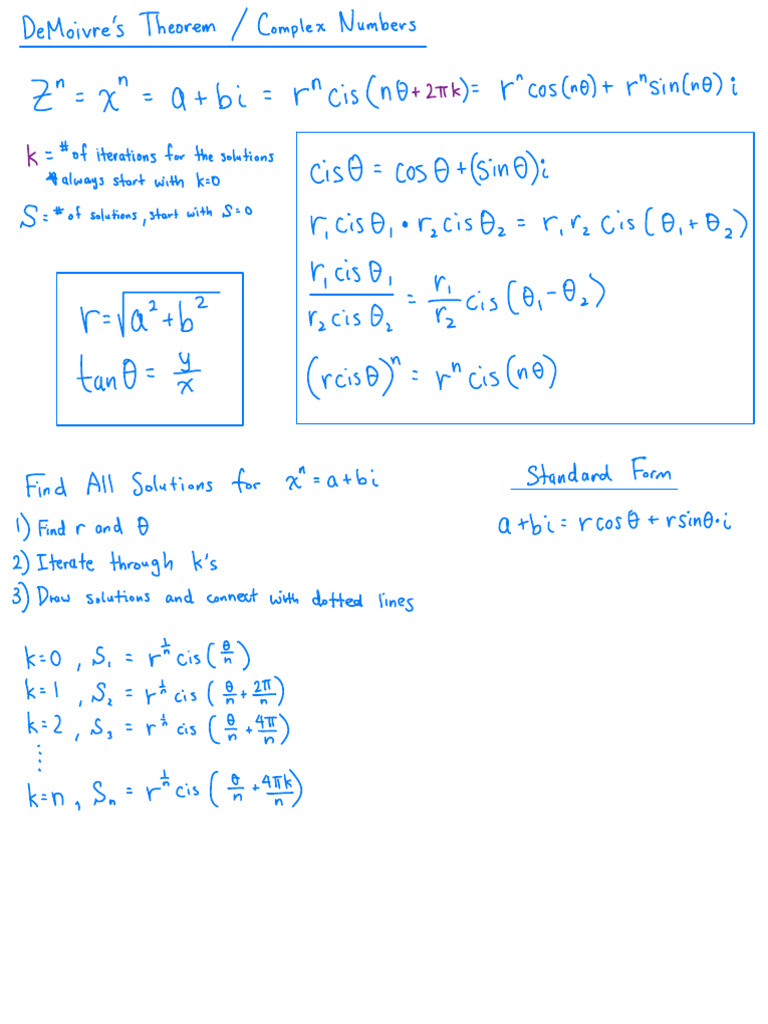 DeMoivre's Theorem / Complex Numbers
Zⁿ = xⁿ = a + bi = rⁿ cis(nθ + 2πk) = rⁿ cos(nθ) + rⁿ sin(nθ) i
k = # of iterations for the solutions
* always start with k=0
S = # of solutions, start with S=0
r = √(a² + b²)
tan θ = y/x
cis θ = cos θ + (sin θ)i
r₁ cis θ₁ • r₂ cis θ₂ = r₁ r₂ cis (θ₁ + θ₂)
r₁ cis θ₁ / r₂ cis θ₂ = r₁/r₂ cis (θ₁ - θ₂)
(r cis θ)ⁿ = rⁿ cis (nθ)
Find All Solutions for xⁿ = a + bi
1) Find r and θ
2) Iterate through k's
3) Draw solutions and connect with dotted lines
k=0, S₁ = r^(1/n) cis (θ/n)
k=1, S₂ = r^(1/n) cis (θ/n + 2π/n)
k=2, S₃ = r^(1/n) cis (θ/n + 4π/n)
⋮
k=n, Sₙ = r^(1/n) cis (θ/n + 4πk/n)
Standard Form
a + bi = r cos θ + r sin θ • i